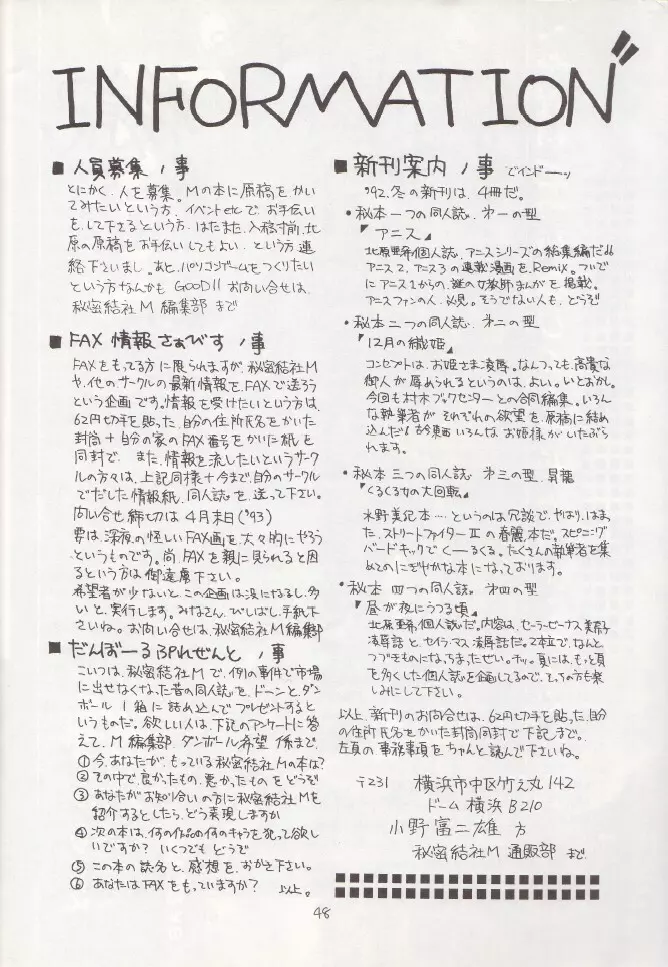 INFORMATION
■人員募集ノ事
とにかく、人を募集。Mの本に原稿をかい
てみたいという方、イベントetcで、お手伝い
をして下さるという方、はたまた、入稿寸前、北
原の原稿をお手伝いしてもよい、という方、連
絡下さいまし。あと、パソコンゲームをつくりたい
という方なんかも GOOD!! お向い合せは、
秘密結社M 編集部 まで
■FAX 情報さぁびす ノ事
FAXをもってる方に限られますが、秘密結社M
や、他のサークルの最新情報を、FAXで送ろう
という企画です。情報を受けたいという方は、
62円切手を貼った、自分の住所氏名をかいた
封筒+自分の家のFAX番号をかいた紙を
同封で、また、情報を流したいというサーク
ルの方々は、上記同様+今まで、自分のサークル
でだした情報紙、同人誌を、送って下さい。
問い合せ締切は 4月末日('93)
要は、深夜の怪しいFAX画を、大々的にやろう
というものです。尚、FAXを親に見られると困
るという方は御遠慮下さい。
希望者が少ないと、この企画は没になるし、多
いと、実行します。みなさん、びしばし、手紙下
さいね。お向い合せは、秘密結社M編集部
■だんぼーるぷれぜんと ノ事
こいつは、秘密結社Mで、例の事件で市場
に出せなくなった昔の同人誌を、ドーンと、ダン
ボール 1箱 に詰め込んで プレゼントすると
いうものだ。欲しい人は、下記のアンケートに答
えて、M 編集部 ダンボール希望 係まで。
①今、あなたが、もっている秘密結社Mの本は?
②その中で、良かったもの、悪かったものをどうぞ
③あなたがお知り合いの方に秘密結社Mを
紹介するとしたら、どう表現しますか
④次の本は、何の作品の何のキャラを犯って欲し
いですか? いくつでも どうぞ
⑤この本の誌名と、感想を、おかき下さい。
⑥あなたはFAXをもっていますか? 以上。
■新刊案内ノ事 でインドーッ
'92.冬の新刊は、4冊だ。
・秘本一つの同人誌、オ一の型
『アニス』
北原亜希個人誌、アニスシリーズの総集編だ!!
アニス2、アニス3の連載漫画を、Remix。ついで
にアニス1からの、謎の女教師まんがを掲載。
アニスファンの人、必見。そうでない人も、どうぞ
・秘本二つの同人誌、オ二の型
『12月の織姫』
コンセプトは、お姫さま凌辱。なんつっても、高貴な
御人が辱められるというのは、よい。いとおかし。
今回も村木ブックセンターとの合同編集。いろん
な執筆者が、それぞれの欲望を、原稿に結め
込んだ!古今東西いろんなお姫様がいたぶら
れます。
・秘本三つの同人誌、オ三の型、昇龍
『くるくる女の大回転』
水野美紀本…というのは冗談で、やはり、はま
た、ストリートファイターⅡの春麗本だ。スピニング
バードキックでくーるくる。たくさんの執筆者を集
めてのにぎやかな本になっております。
・秘本四つの同人誌、オ四の型
『昼が夜にうつる頃』
北原亜希個人誌だ。内容は、セーラービーナス美奈子
凌辱話と、セイラ・マス凌辱話だ。2本立で、なんと
つづきものになっちまったぜい。ナッ。夏には、もっと頁
を多くした個人誌を企画してるので、そっちの方も楽
しみにして下さい。
以上、新刊のお向合せは、62円切手を貼った、自分
の住所氏名をかいた封筒同封で下記まで。
左頁の事務事項をちゃんと読んで下さいね。
〒231 横浜市中区竹之丸142
ドーム横浜B210
小野富二雄 方
秘密結社M 通販部 まで
48